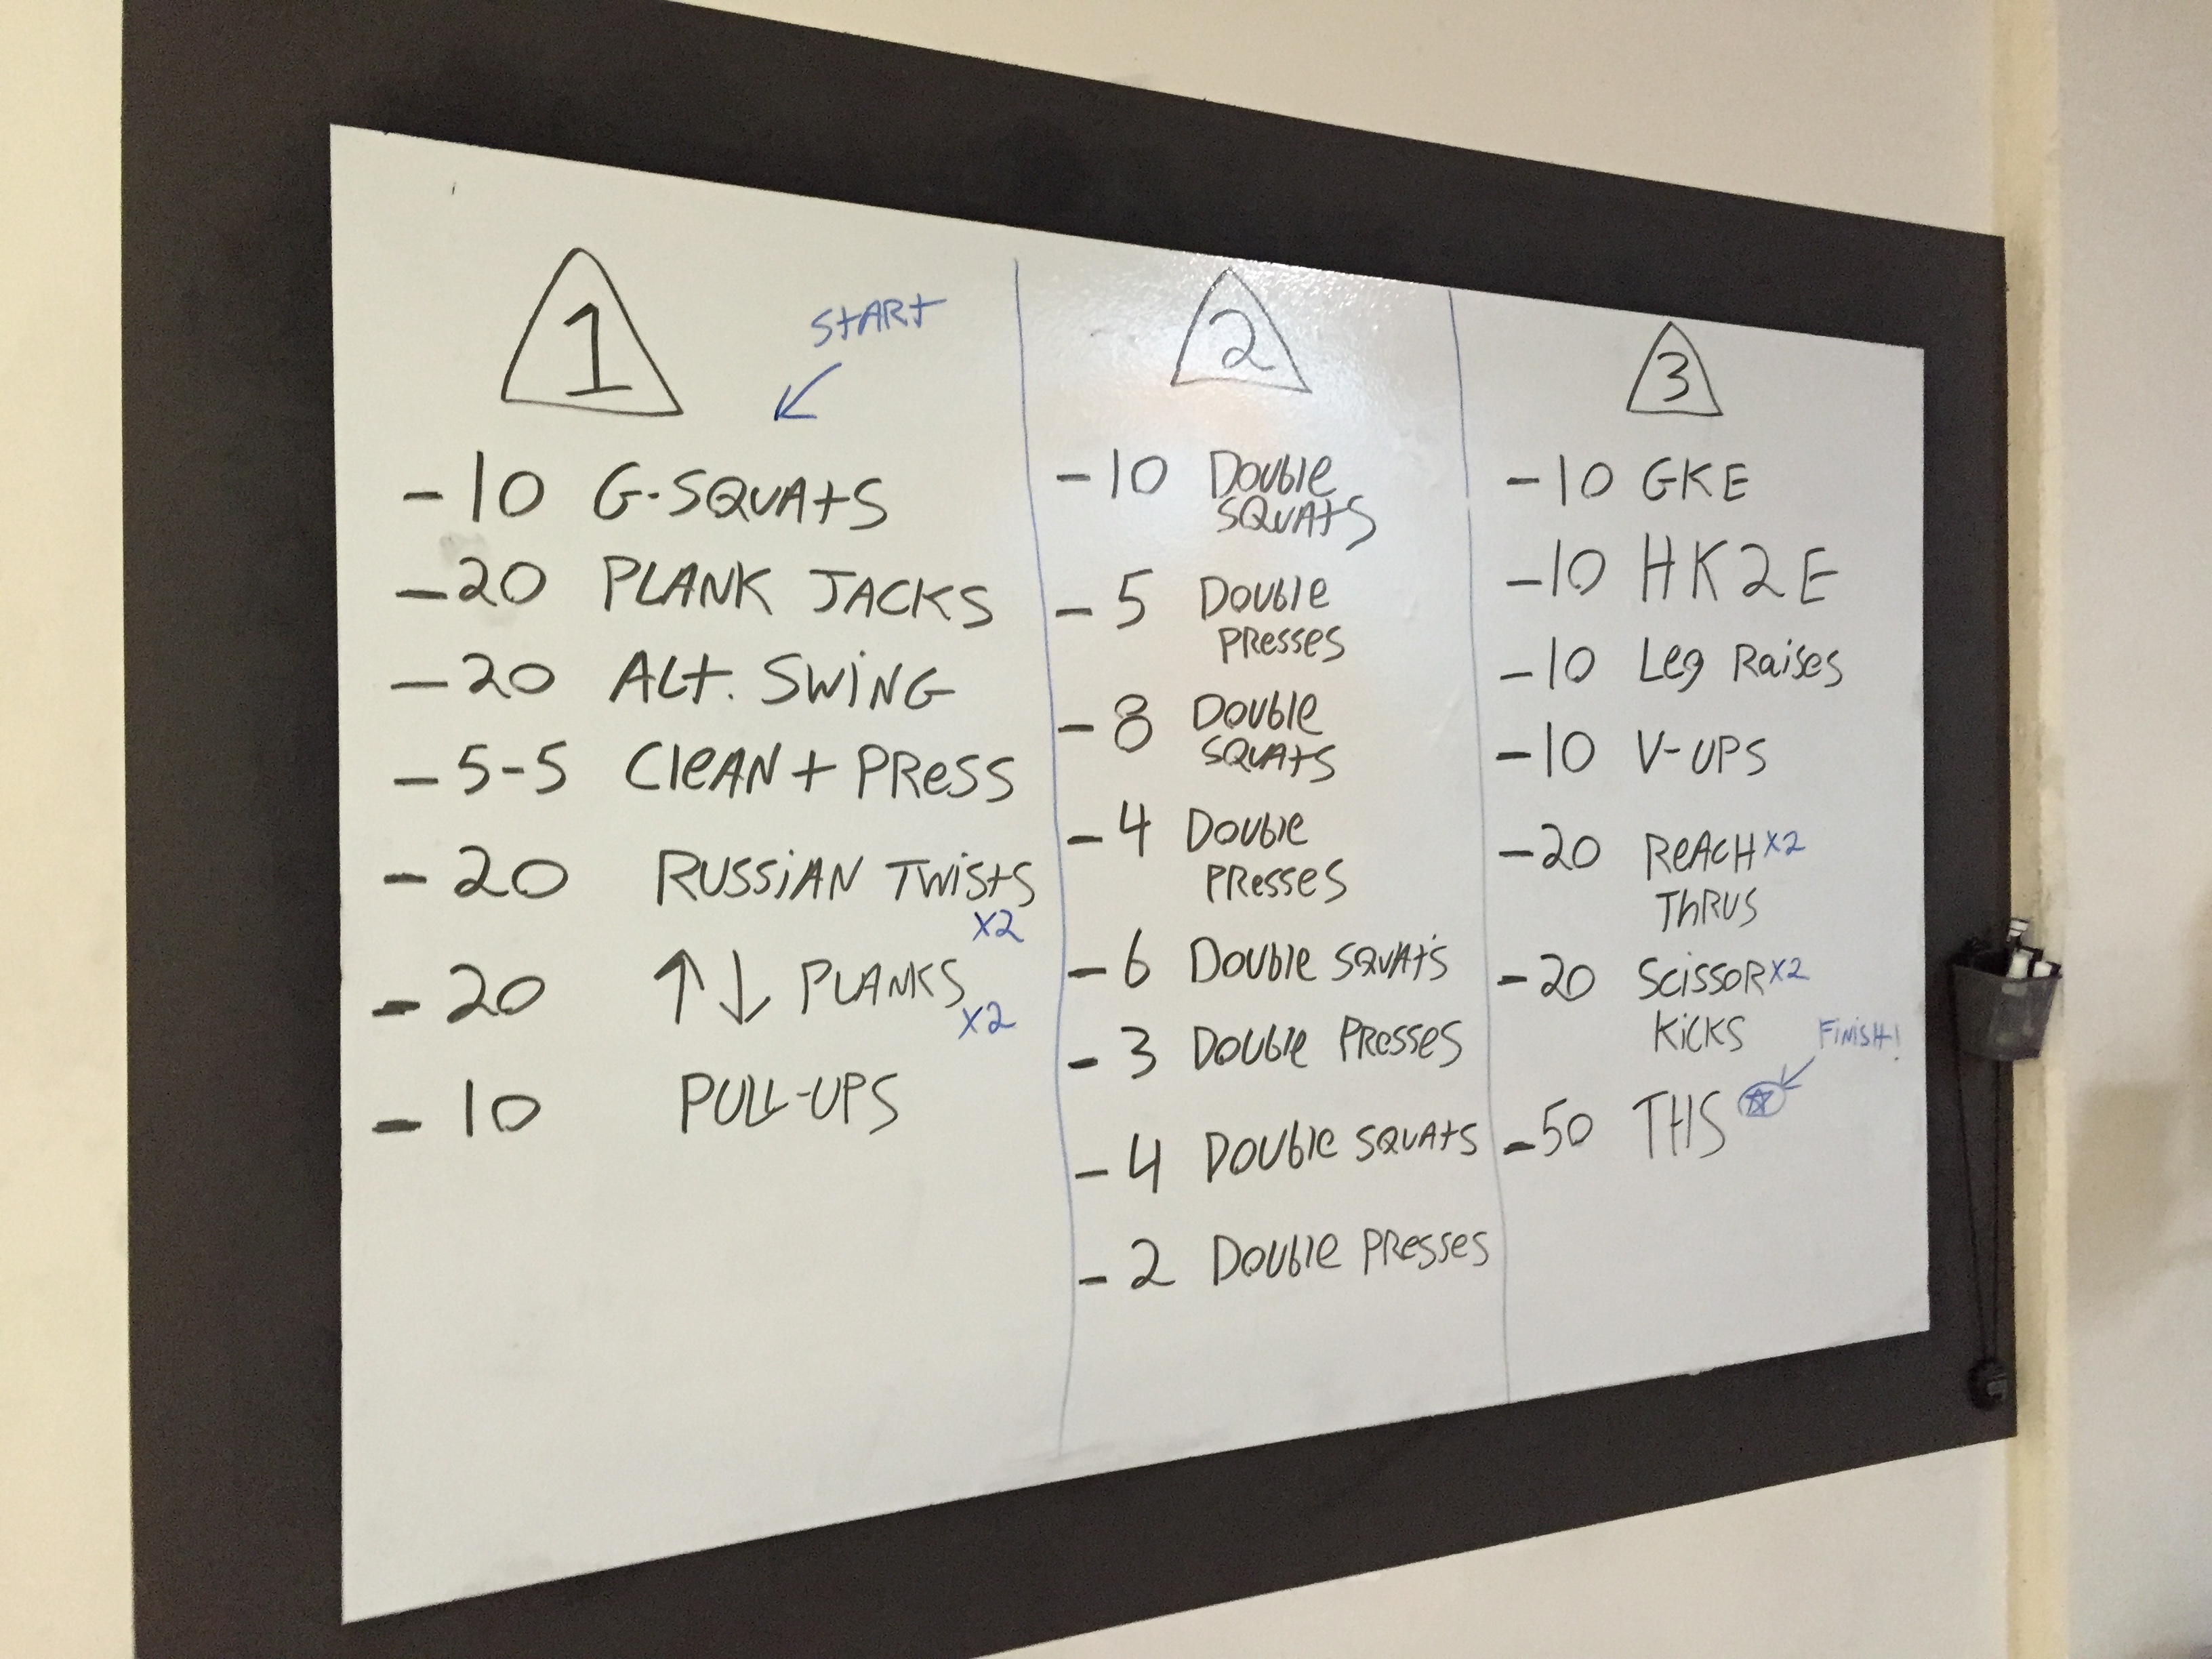 1
START
- 10 G-SQUATS
- 20 PLANK JACKS
- 20 ALT. SWING
- 5-5 CLEAN + PRESS
- 20 RUSSIAN TWISTS
X2
- 20 ↑↓ PLANKS
X2
- 10 PULL-UPS
2
- 10 DOUBLE
SQUATS
- 5 DOUBLE
PRESSES
- 8 DOUBLE
SQUATS
- 4 DOUBLE
PRESSES
- 6 DOUBLE SQUATS
- 3 DOUBLE PRESSES
- 4 DOUBLE SQUATS
- 2 DOUBLE PRESSES
3
- 10 GKE
- 10 HK2E
- 10 Leg Raises
- 10 V-UPS
- 20 REACH X2
THRUS
- 20 SCISSOR X2
KICKS
FINISH!
- 50 THS